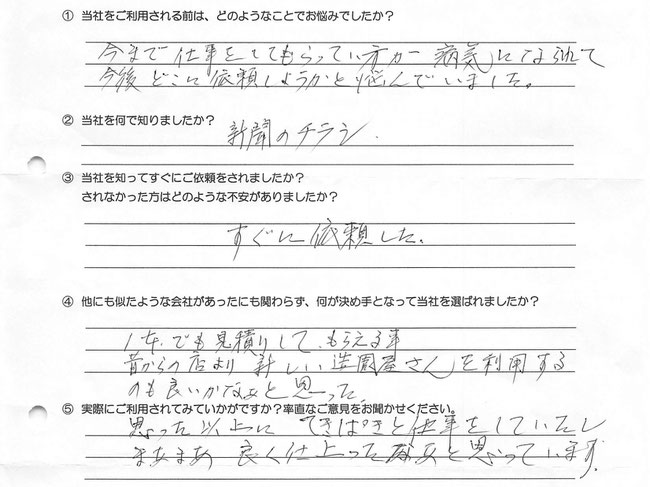 ① 当社をご利用される前は、どのようなことでお悩みでしたか？
今まで仕事をしてもらってい方が病気になられて
今後どこに依頼しようかと悩んでいました。
② 当社を何で知りましたか？
新聞のチラシ.
③ 当社を知ってすぐにご依頼をされましたか？
されなかった方はどのような不安がありましたか？
すぐに依頼した。
④ 他にも似たような会社があったにも関わらず、何が決め手となって当社を選ばれましたか？
1本でも見積りして、もらえる事
昔からの店より新しい造園屋さんを利用する
のも良いかなぁと思った
⑤ 実際にご利用されてみていかがですか？率直なご意見をお聞かせください。
思った以上にてきぱきと仕事をしていたし
まあまあ良く仕上ったなぁと思っています.